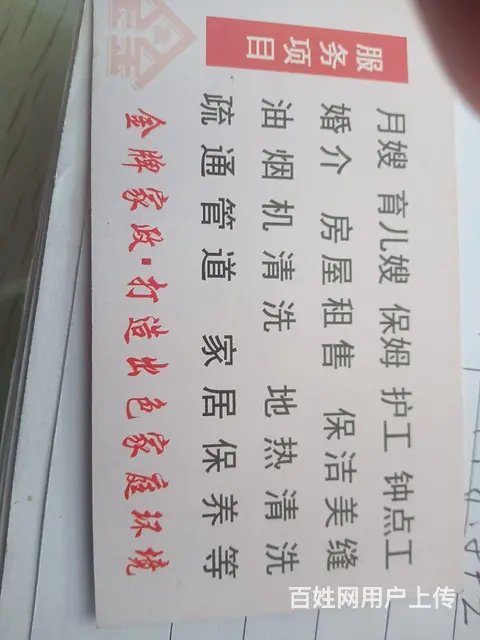 服务项目
月嫂 育儿嫂 保姆 护工 钟点工
婚介 房屋租售 保洁美缝
油烟机清洗 地热清洗
疏通管道 家居保养等
金牌家政·打造出色家庭环境
百姓网用户上传